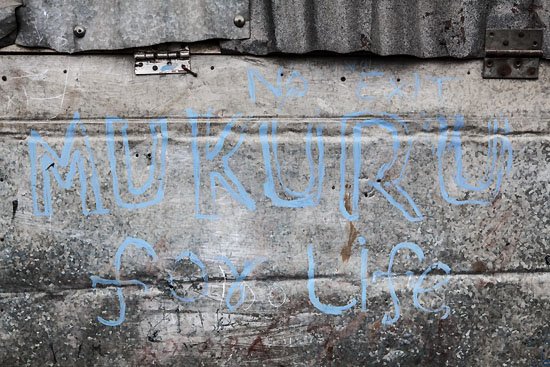 No EXIT
MUKURU
for Life